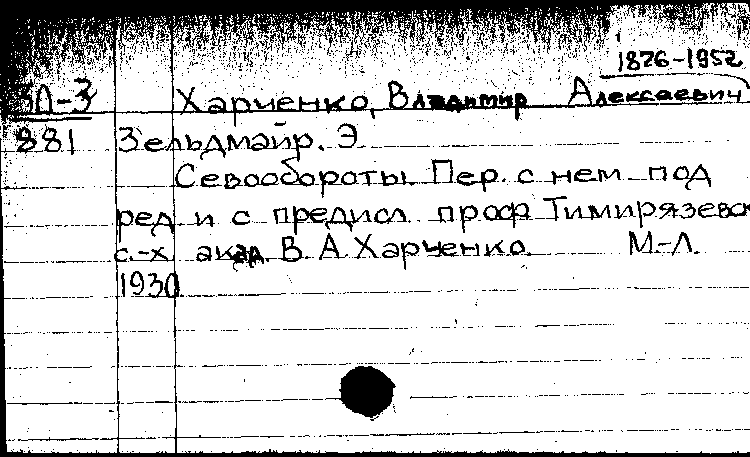 1876-1952
ЗЛ-3 Харченко, Владимир Алексаевич
881 Зельдмайр. Э
Севообороты. Пер. с нем. под
ред и с предисл. проф Тимирязевск
с.-х. акад. В. А. Харченко. М-Л.
1930